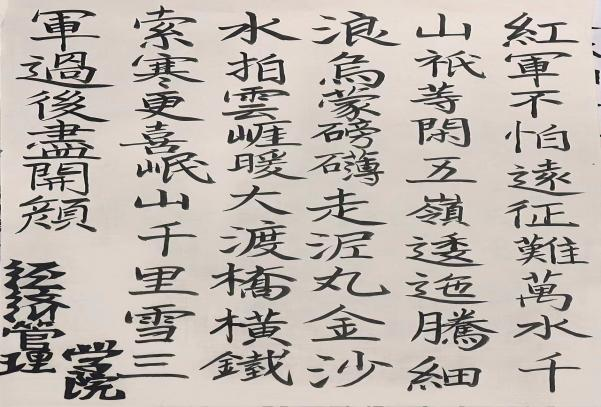 紅軍不怕遠征難萬水千
山祇等閑五嶺逶迤騰細
浪烏蒙磅礴走泥丸金沙
水拍雲崕暖大渡橋橫鐵
索寒更喜岷山千里雪三
軍過後盡開顏
经济管理
学院